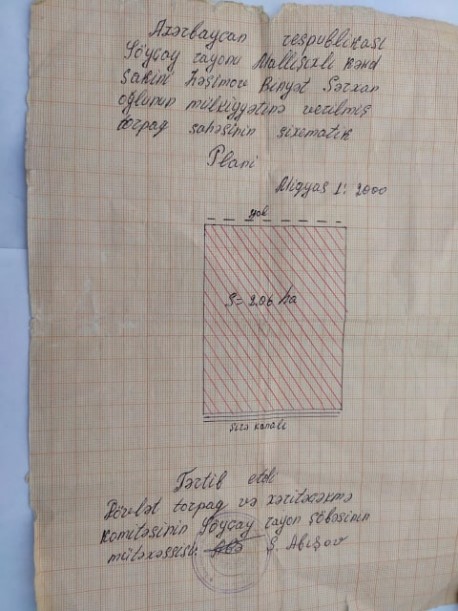 Azərbaycan respublikası
Göyçay rayonu Mallışıxlı kənd
sakini Həşimov Bünyət Sərxan
oğlunun mülkiyyətinə verilmiş
torpaq sahəsinin sxematik
Planı
Miqyas 1: 2000
yol
S= 2.06 ha
Şirə kanalı
Tərtib etdi
Dövlət torpaq və xəritəçəkmə
komitəsinin Göyçay rayon şöbəsinin
mütəxəssisi Ş. Abışov